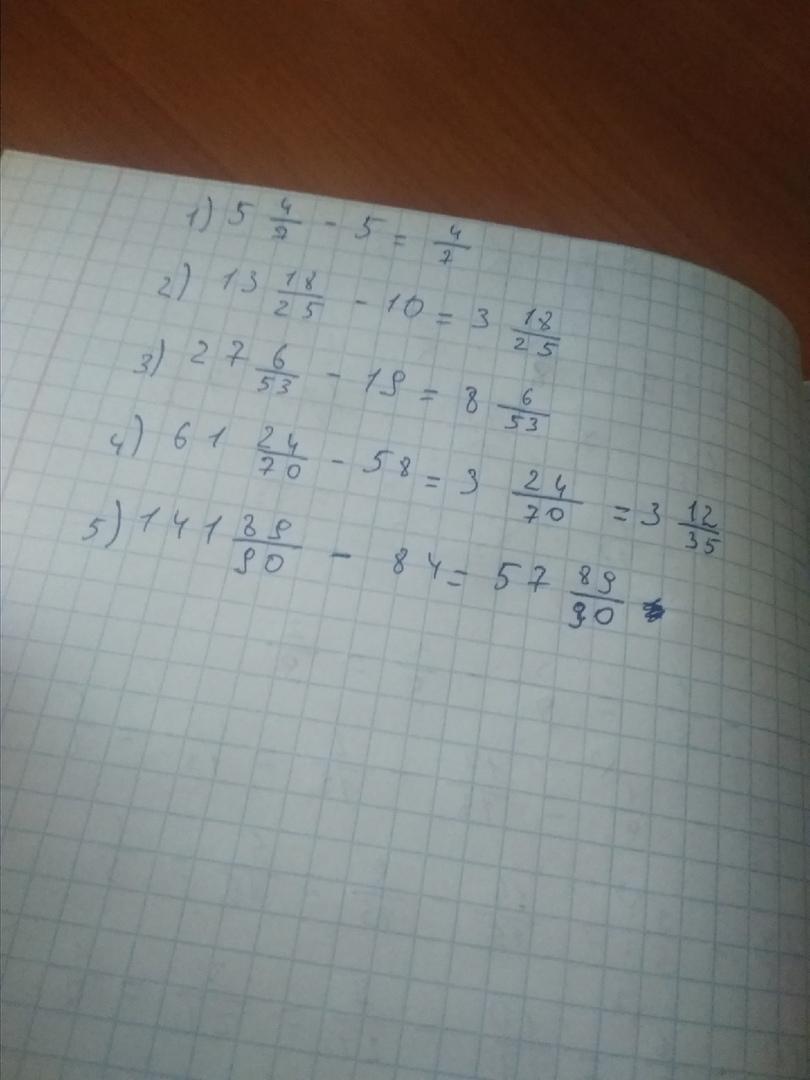 1) 5 4/7 - 5 = 4/7
2) 13 18/25 - 10 = 3 18/25
3) 27 6/53 - 19 = 8 6/53
4) 61 24/70 - 58 = 3 24/70 = 3 12/35
5) 141 89/90 - 84 = 57 89/90